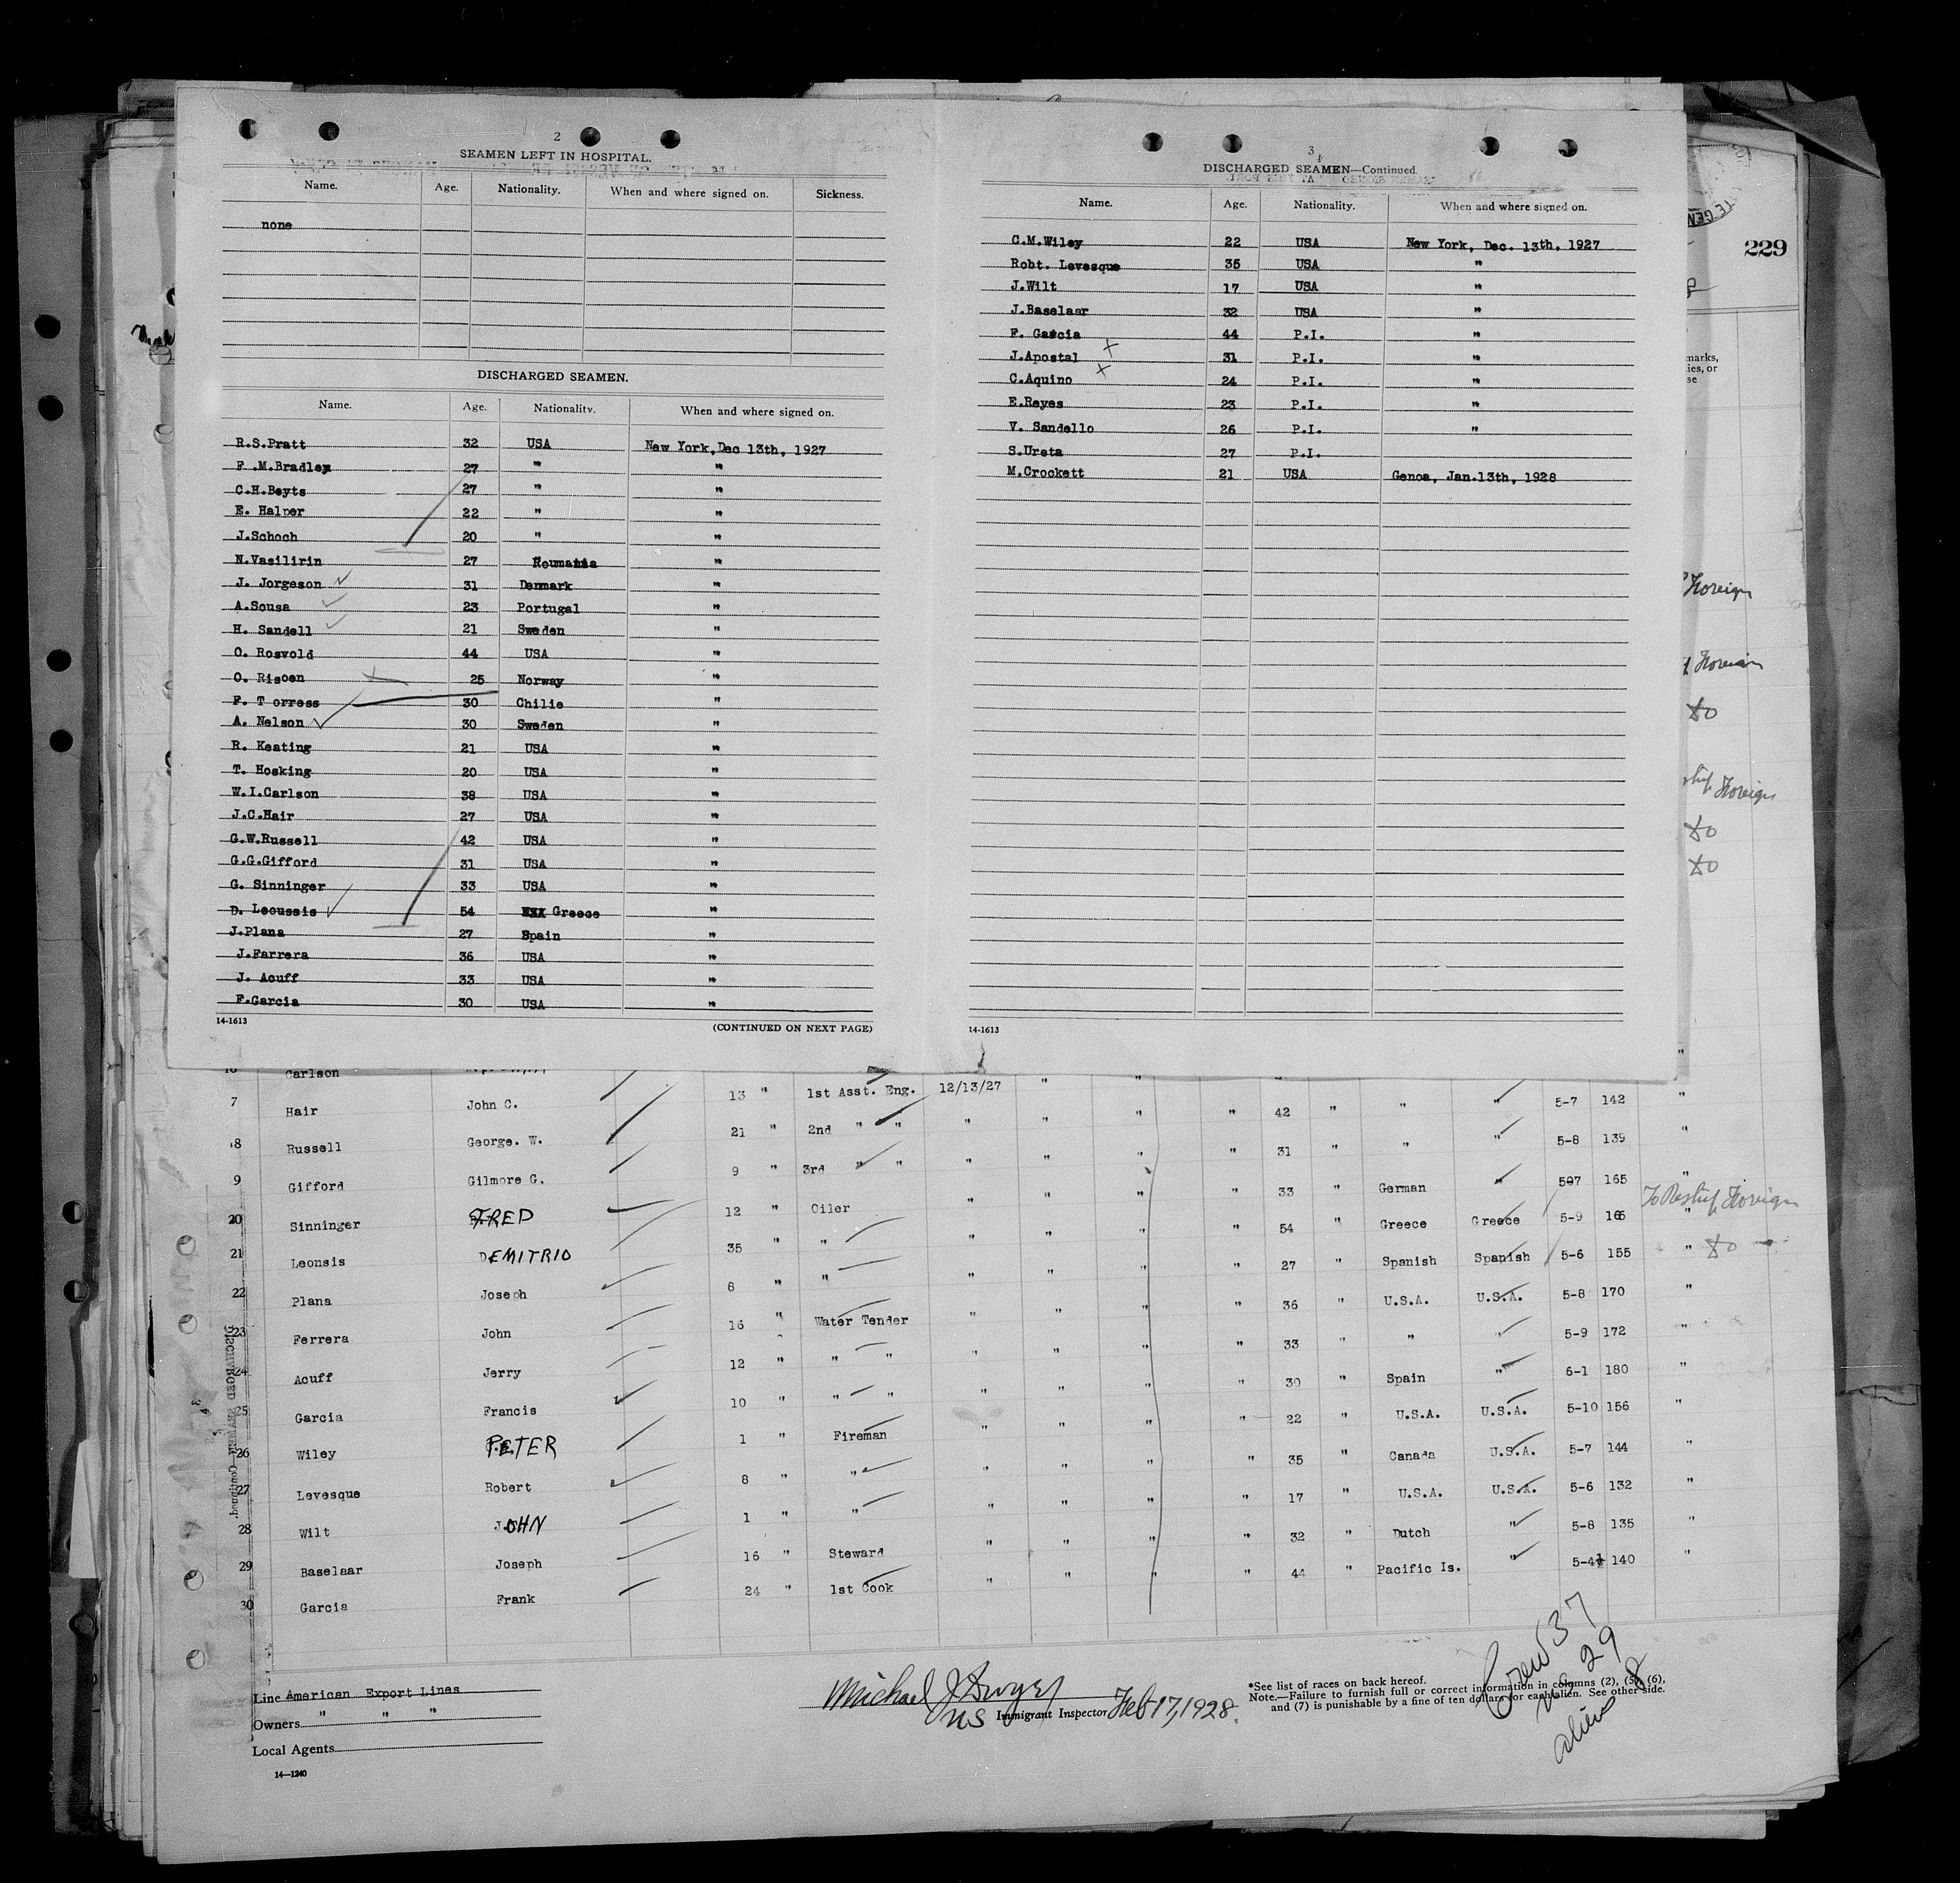 2
SEAMEN LEFT IN HOSPITAL.
Name. Age. Nationality. When and where signed on. Sickness.
none
DISCHARGED SEAMEN.
Name. Age. Nationality. When and where signed on.
R.S.Pratt 32 USA New York,Dec 13th, 1927
F .M.Bradley 27 " "
C.H.Beyts 27 " "
E. Halper 22 " "
J.Schoch 20 " "
N.Vasilirin 27 Roumania "
J. Jorgeson 31 Denmark "
A.Sousa 23 Portugal "
H. Sandell 21 Sweden "
O. Rosvold 44 USA "
O. Risoen 25 Norway "
F. T orress 30 Chilie "
A. Nelson 30 Sweden "
R. Keating 21 USA "
T. Hosking 20 USA "
W.I.Carlson 38 USA "
J.C.Hair 27 USA "
G.W.Russell 42 USA "
G.G.Gifford 31 USA "
G. Sinninger 33 USA "
D. Leoussis 54 Greece "
J.Plana 27 Spain "
J.Farrera 36 USA "
J. Acuff 33 USA "
F.Garcia 30 USA "
14-1613 (CONTINUED ON NEXT PAGE)
3
DISCHARGED SEAMEN—Continued.
Name. Age. Nationality. When and where signed on.
C.M.Wiley 22 USA New York, Dec. 13th, 1927
Robt. Levesque 35 USA "
J.Wilt 17 USA "
J.Baselaar 32 USA "
F. Garcia 44 P.I. "
J.Apostal 31 P.I. "
C.Aquino 24 P.I. "
E.Reyes 23 P.I. "
V. Sandello 26 P.I. "
S.Ureta 27 P.I.
M.Crockett 21 USA Genoa, Jan.13th, 1928
14-1613
229
marks,
ies, or
se
Foreign
Foreign
do
Foreign
do
do
Carlson
7 Hair John C. 13 " 1st Asst. Eng. 12/13/27 " "
8 Russell George. W. 21 " 2nd " " " " " " 42 " " " 5-7 142 "
9 Gifford Gilmore G. 9 " 3rd " " " " " " 31 " " " 5-8 139 "
20 Sinninger FRED 12 " Oiler " " " " 33 " German " 507 165 "
21 Leonsis DEMITRIO 35 " " " " " " 54 " Greece Greece 5-9 165 " To Reship Foreign
22 Plana Joseph 8 " " " " " " 27 " Spanish Spanish 5-6 155 " do
23 Ferrera John 16 " Water Tender " " " " 36 " U.S.A. U.S.A. 5-8 170 "
24 Acuff Jerry 12 " " " " " " " 33 " " " 5-9 172 "
25 Garcia Francis 10 " " " " " " " 30 " Spain " 6-1 180 "
26 Wiley PETER 1 " Fireman " " " " 22 " U.S.A. U.S.A. 5-10 156 "
27 Levesque Robert 8 " " " " " " 35 " Canada U.S.A. 5-7 144 "
28 Wilt JOHN 1 " " " " " " 17 " U.S.A. U.S.A. 5-6 132 "
29 Baselaar Joseph 16 " Steward " " " " 32 " Dutch " 5-8 135 "
30 Garcia Frank 24 " 1st Cook " " " " 44 " Pacific Is. " 5-4½ 140 "
DISCHARGED SEAMEN—Continued.
Line American Export Lines
Owners " " "
Local Agents
14—1240
Michael J Dwyer
US Immigrant Inspector Feb 17, 1928.
*See list of races on back hereof.
Note.—Failure to furnish full or correct information in columns (2), (5), (6),
and (7) is punishable by a fine of ten dollars for each alien. See other side.
Crew 37
US 29
aliens 8